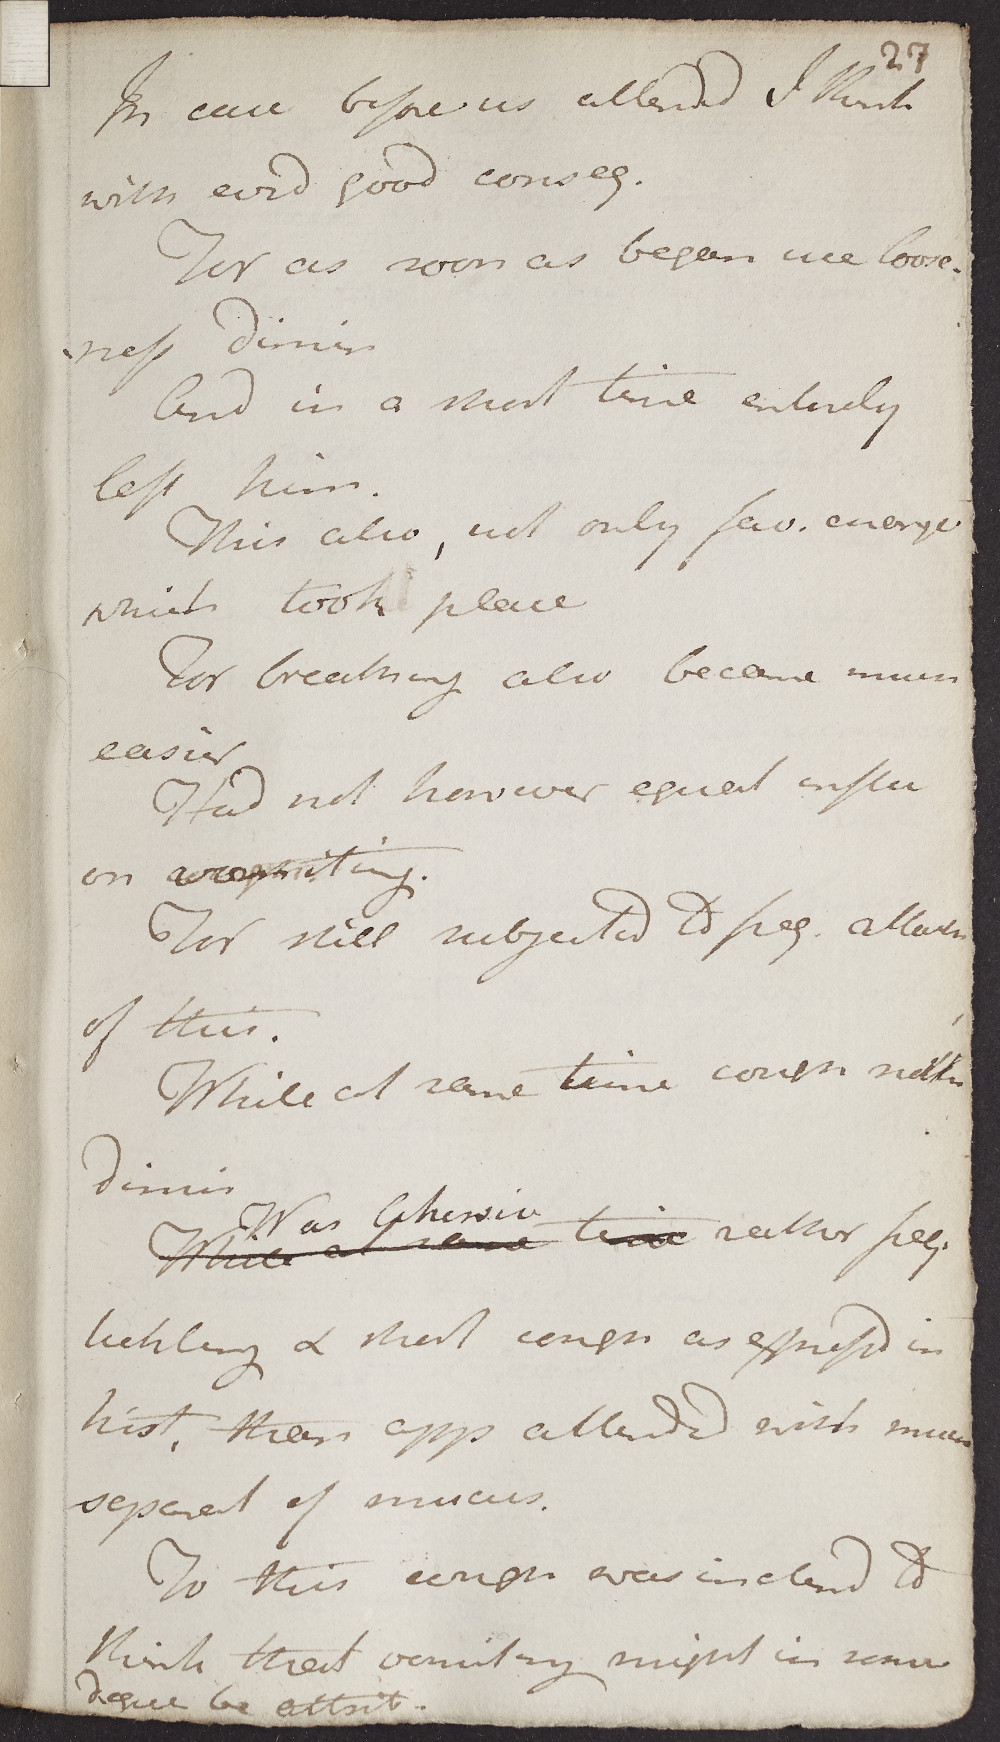 27
In case before us attended I think
with evid good conseq.
For as soon as began use loose-
-ness dimin
And in a short time entirely
left him.
This also, not only fav. change
which took place
For breathing also became much
easier
Had not however equal influ
on vomiting.
For still subjected to freq. attacks
of this.
While at same time cough not
dimin
Was likewise
While at same time rather freq.
tickling & short cough as expressd in
hist. than app attended with much
separat of mucus.
To this cough was inclind to
think that vomiting might in some
degree be attrib.